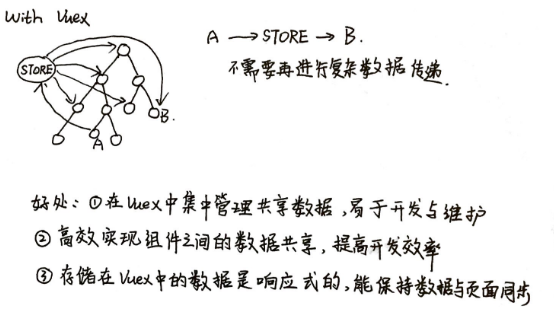 With Vuex
A → STORE → B.
不需要再进行复杂数据传递.
STORE
B.
A
好处：①在Vuex中集中管理共享数据，易于开发与维护
②高效实现组件之间的数据共享，提高开发效率
③存储在Vuex中的数据是响应式的，能保持数据与页面同步